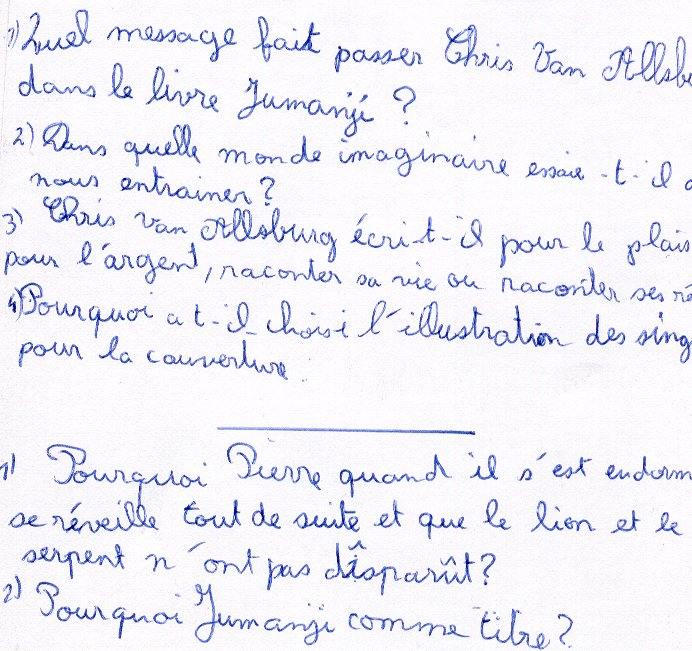 1) Quel message fait passer Chris Van Allsbu
dans le livre Jumanji ?
2) Dans quelle monde imaginaire essaie -t- il d
nous entrainer ?
3) Chris Van Allsburg écri-t-il pour le plais
pour l'argent, raconter sa vie ou raconter ses rê
4) Pourquoi a t-il choisi l'illustration des sing
pour la couverture
1) Pourquoi Pierre quand il s'est endorm
se réveille tout de suite et que le lion et le
serpent n'ont pas dîsparût ?
2) Pourquoi Jumanji comme titre ?